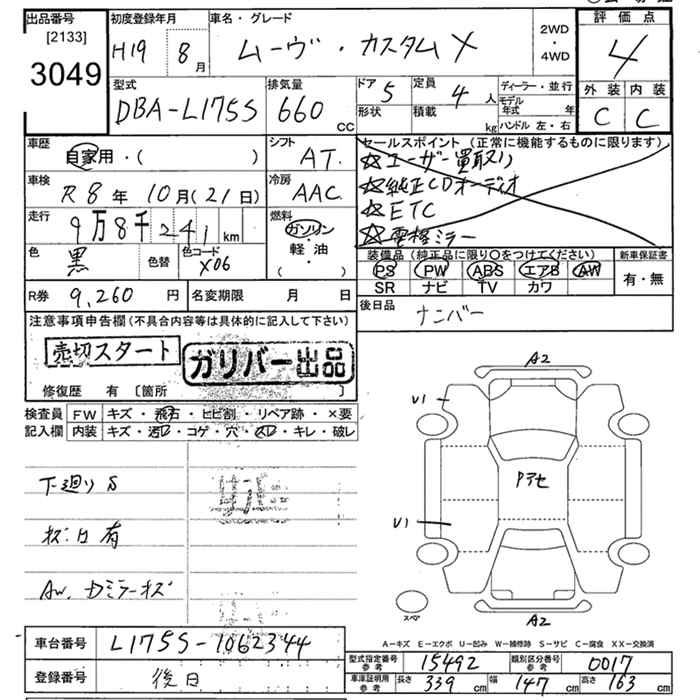 出品番号
[2133]
3049
初度登録年月
H19 8月
車名・グレード
ムーヴ・カスタムX
2WD
・
4WD
評価点
4
型式
DBA-L175S
排気量
660 CC
ドア 5
形状
定員 4 人
積載 kg
ディーラー・並行
モデル年式 年
ハンドル 左・右
外装 内装
C C
車歴
自家用・( )
シフト
AT
セールスポイント (正常に機能するものに限ります)
☆ユーザー買取り
☆純正CDオーディオ
☆ETC
☆電格ミラー
車検
R8年10月(21日)
冷房
AAC
走行
9万8千241 km
燃料
ガソリン
軽・油
( )
色
黒
色替
色コード
X06
装備品 (純正品に限り○をつけてください)
新車保証書
PS PW ABS エアB AW
SR ナビ TV カワ
有・無
R券 9,260 円
名変期限 月 日
後日品
ナンバー
注意事項申告欄(不具合内容等は具体的に記入して下さい)
売切スタート
ガリバー出品
修復歴 有 〔箇所 〕
検査員
記入欄
FW キズ・飛石・ヒビ割・リペア跡・×要
内装 キズ・汚レ・コゲ・穴・スレ・キレ・破レ
下廻りS
キズ凹有
AW、Dミラーキズ
A2
U1
Pアセ
U1
スペア
A2
A-キズ E-エクボ U-凹み W-補修跡 S-サビ C-腐食 XX-交換済
車台番号 L175S-1062344
登録番号 後日
型式指定番号 参考 15492
類別区分番号 参考 0017
車庫証明用 参考 長さ 339 cm 幅 147 cm 高さ 163 cm